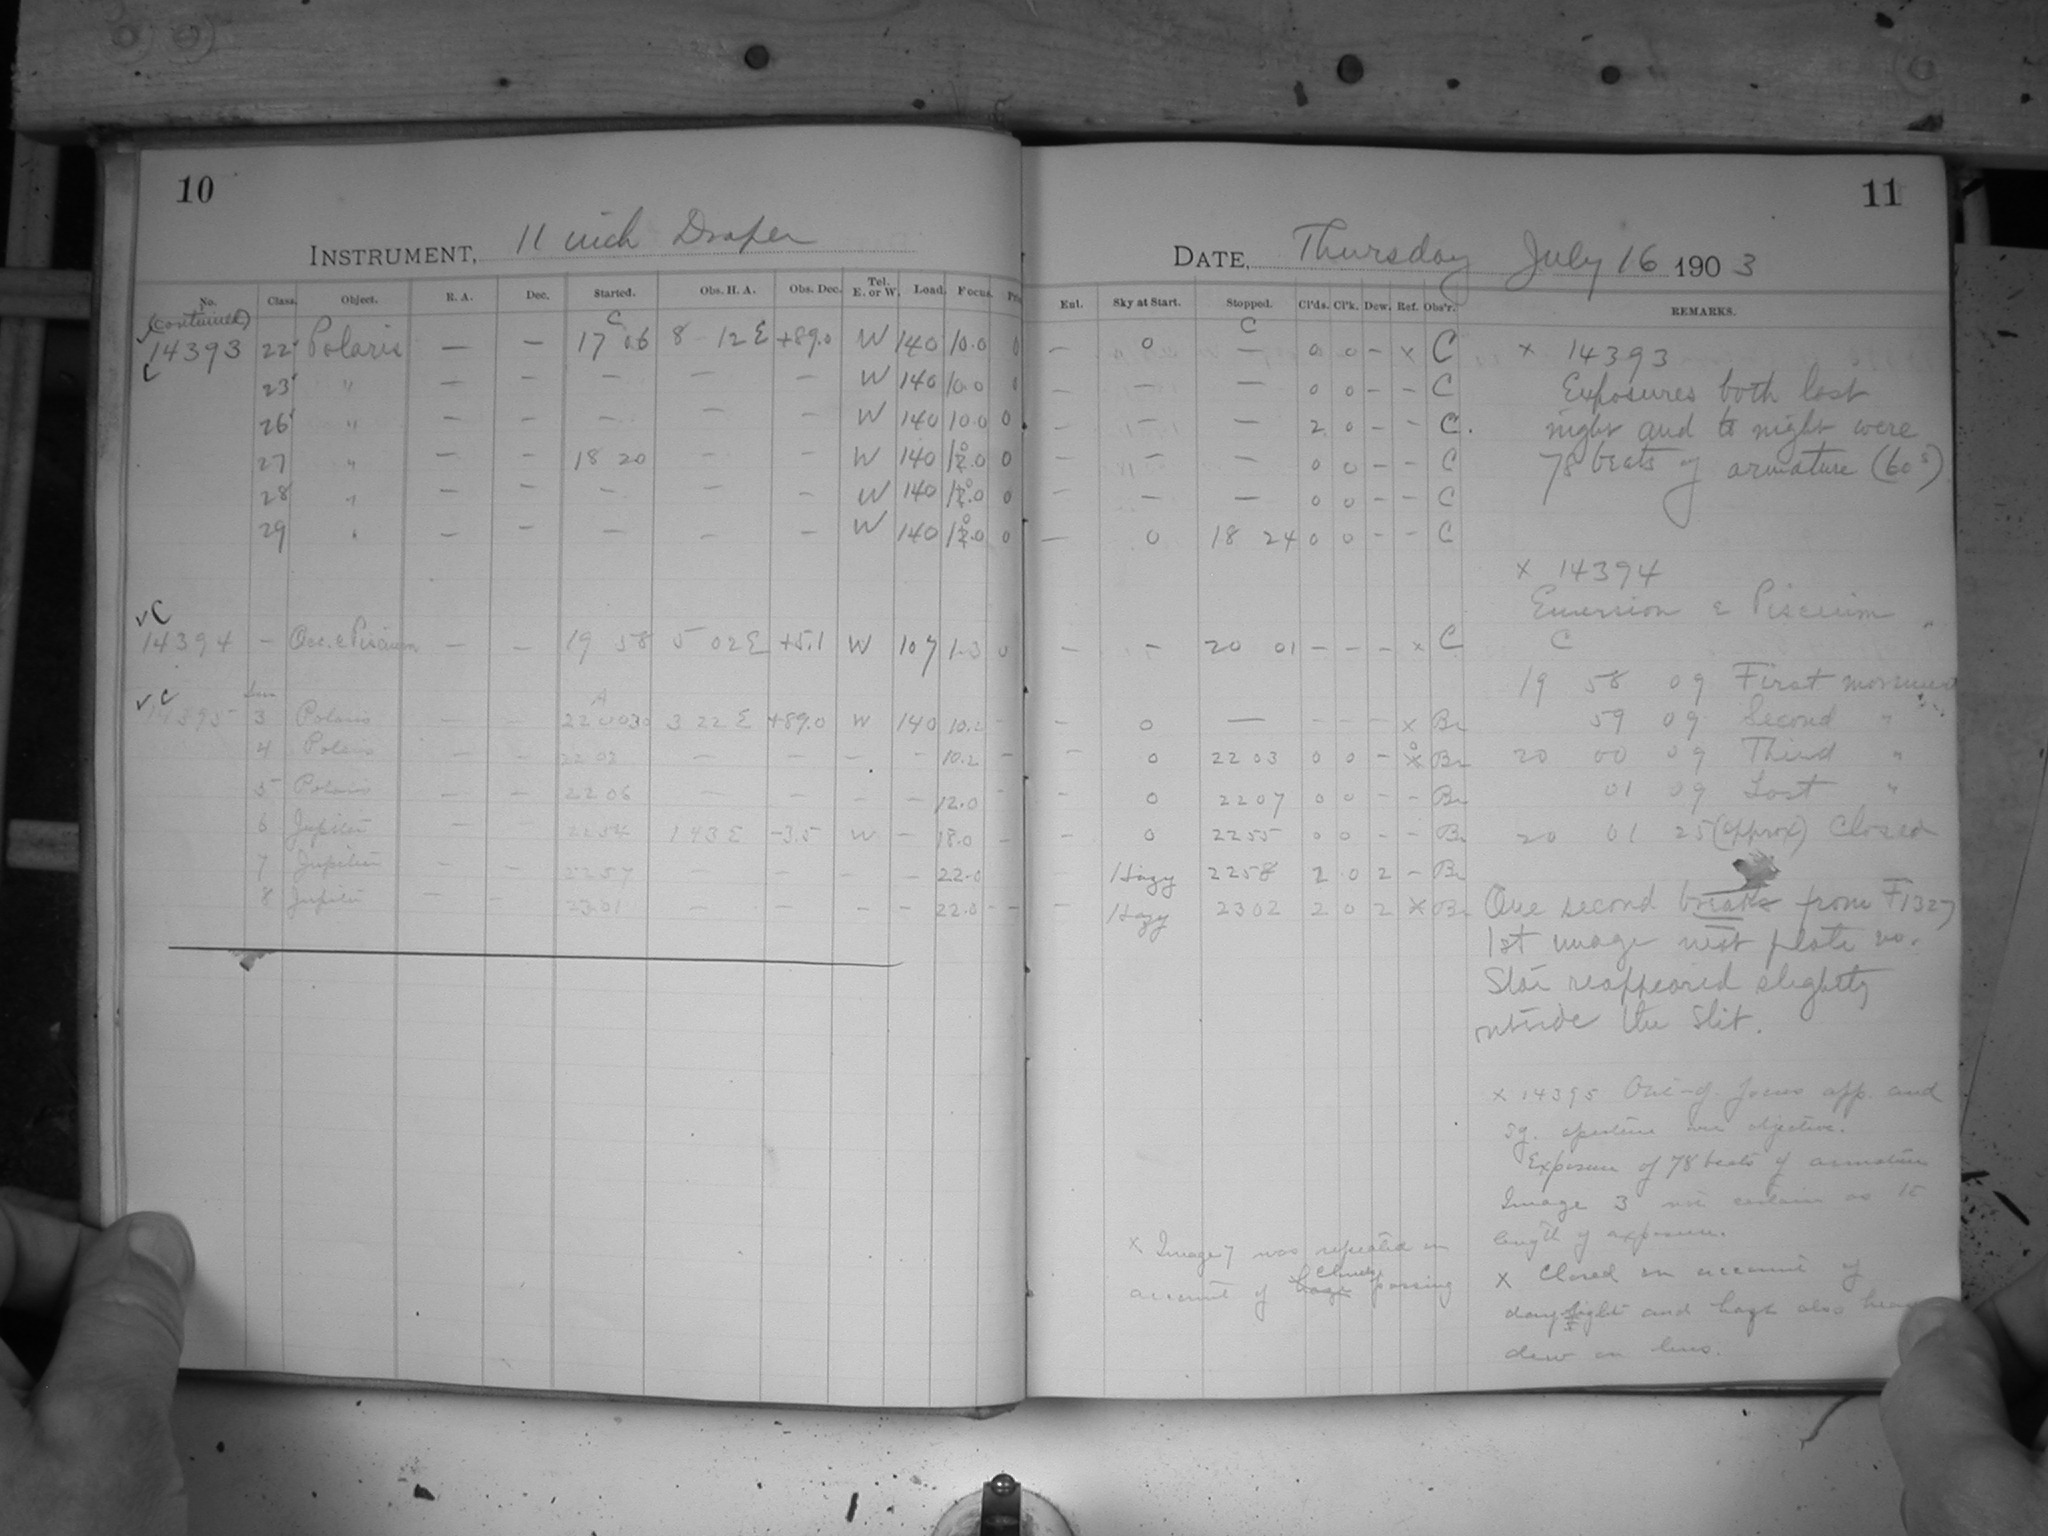 10
INSTRUMENT, 11 inch Draper
No. Class. Object. R. A. Dec. Started. Obs. H. A. Obs. Dec. Tel. E. or W. Load. Focus.
(continued) C
14393 22 Polaris — — 17 06 8 12 E +89.0 W 140 10.0 0
C 23 " — — — — — W 140 10.0 0
26 " — — — — — W 140 10.0 0
27 " — — 18 20 — — W 140 0
28 " — — — — — W 140 0
29 " — — — — — W 140 0
✓C
14394 — Occ. ε Piscium — — 19 58 5 02 E +5.1 W 107 1.3 0
✓C
A
14395 3 Polaris — — 22 00 30 3 22 E +89.0 W 140 10.2 -
4 Polaris — — 22 02 — — — — 10.2 —
5 Polaris — — 22 06 — — — — 12.0 -
6 Jupiter — 22 54 1 43 E -3.5 W — 18.0 —
7 Jupiter — — 22 57 — — — — 22.0
8 Jupiter — — 23 01 — — — — 22.0 - -
11
DATE, Thursday July 16 1903
Enl. Sky at Start. Stopped. Cl'ds. Cl'k. Dew. Ref. Obs'r. REMARKS.
C
— 0 — 0 0 - x C
— — — 0 0 - - C
— — — 2 0 - - C.
— — — 0 0 - - C
— — — 0 0 - - C
— 0 18 24 0 0 - - C
— — 20 01 - - - x C
— 0 — - - - x Br
— 0 22 03 0 0 - Br
— 0 22 07 0 0 - - Br
— 0 22 55 0 0 - - Br
— Hazy 22 58 2 0 2 - Br
— Hazy 23 02 2 0 2 x Br
x 14393
Exposures both last
night and to night were
78 beats of armature (60s)
x 14394
Emersion ε Piscium
C
19 58 09 First movement
59 09 Second "
20 00 09 Third "
01 09 Last "
20 01 25 (approx) Closed
One second breaks from F1327
1st image next plate no.
Star reappeared slightly
outside the slit.
x 14395 Out-of focus app. and
sq. aperture over objective.
Exposure of 78 beats of armature
Image 3 not certain as to
length of exposure.
x Closed on account of
daylight and haze also heavy
dew on lens.
x Image 7 was repeated on
account of clouds passing